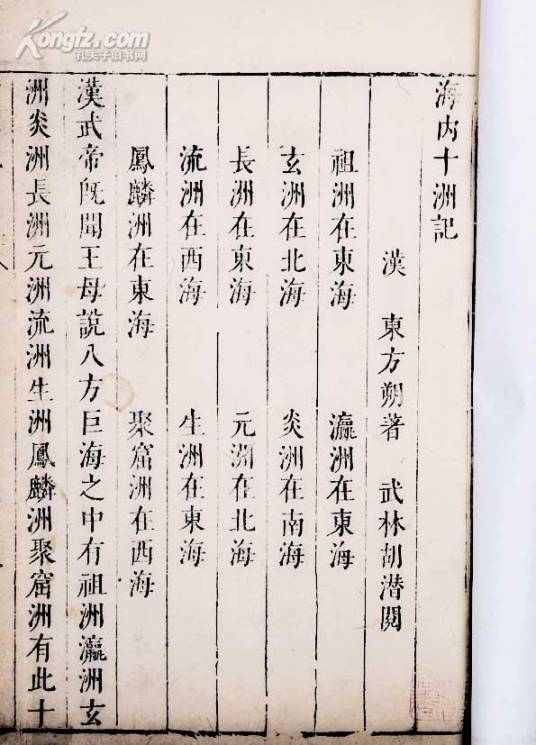 Kongfz.com
孔夫子旧书网
海内十洲記
漢 東方朔著 武林胡潜閱
祖洲在東海 瀛洲在東海
玄洲在北海 炎洲在南海
長洲在東海 元洲在北海
流洲在西海 生洲在東海
鳳麟洲在東海 聚窟洲在西海
漢武帝既聞王母說八方巨海之中有祖洲瀛洲玄
洲炎洲長洲元洲流洲生洲鳳麟洲聚窟洲有此十